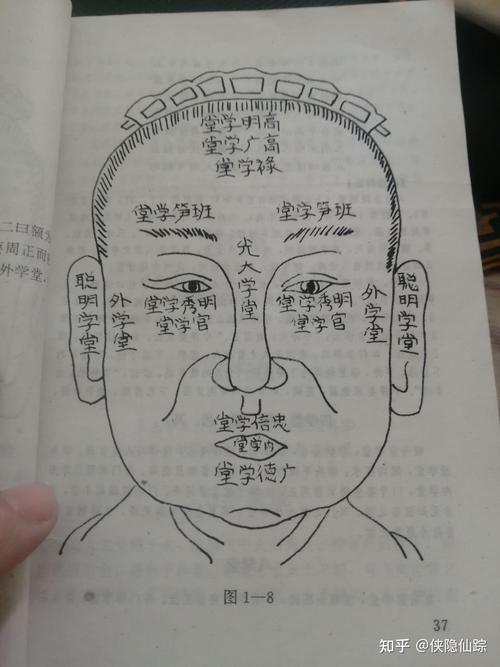 二曰额
周正而
外学堂
高明学堂
高广学堂
禄学堂
班笋学堂
班笋学堂
光大学堂
聪明学堂
外学堂
明秀学堂
官学堂
明秀学堂
官学堂
外学堂
聪明学堂
忠信学堂
内学堂
广德学堂
图1—8
37
知乎 @侠隐仙踪